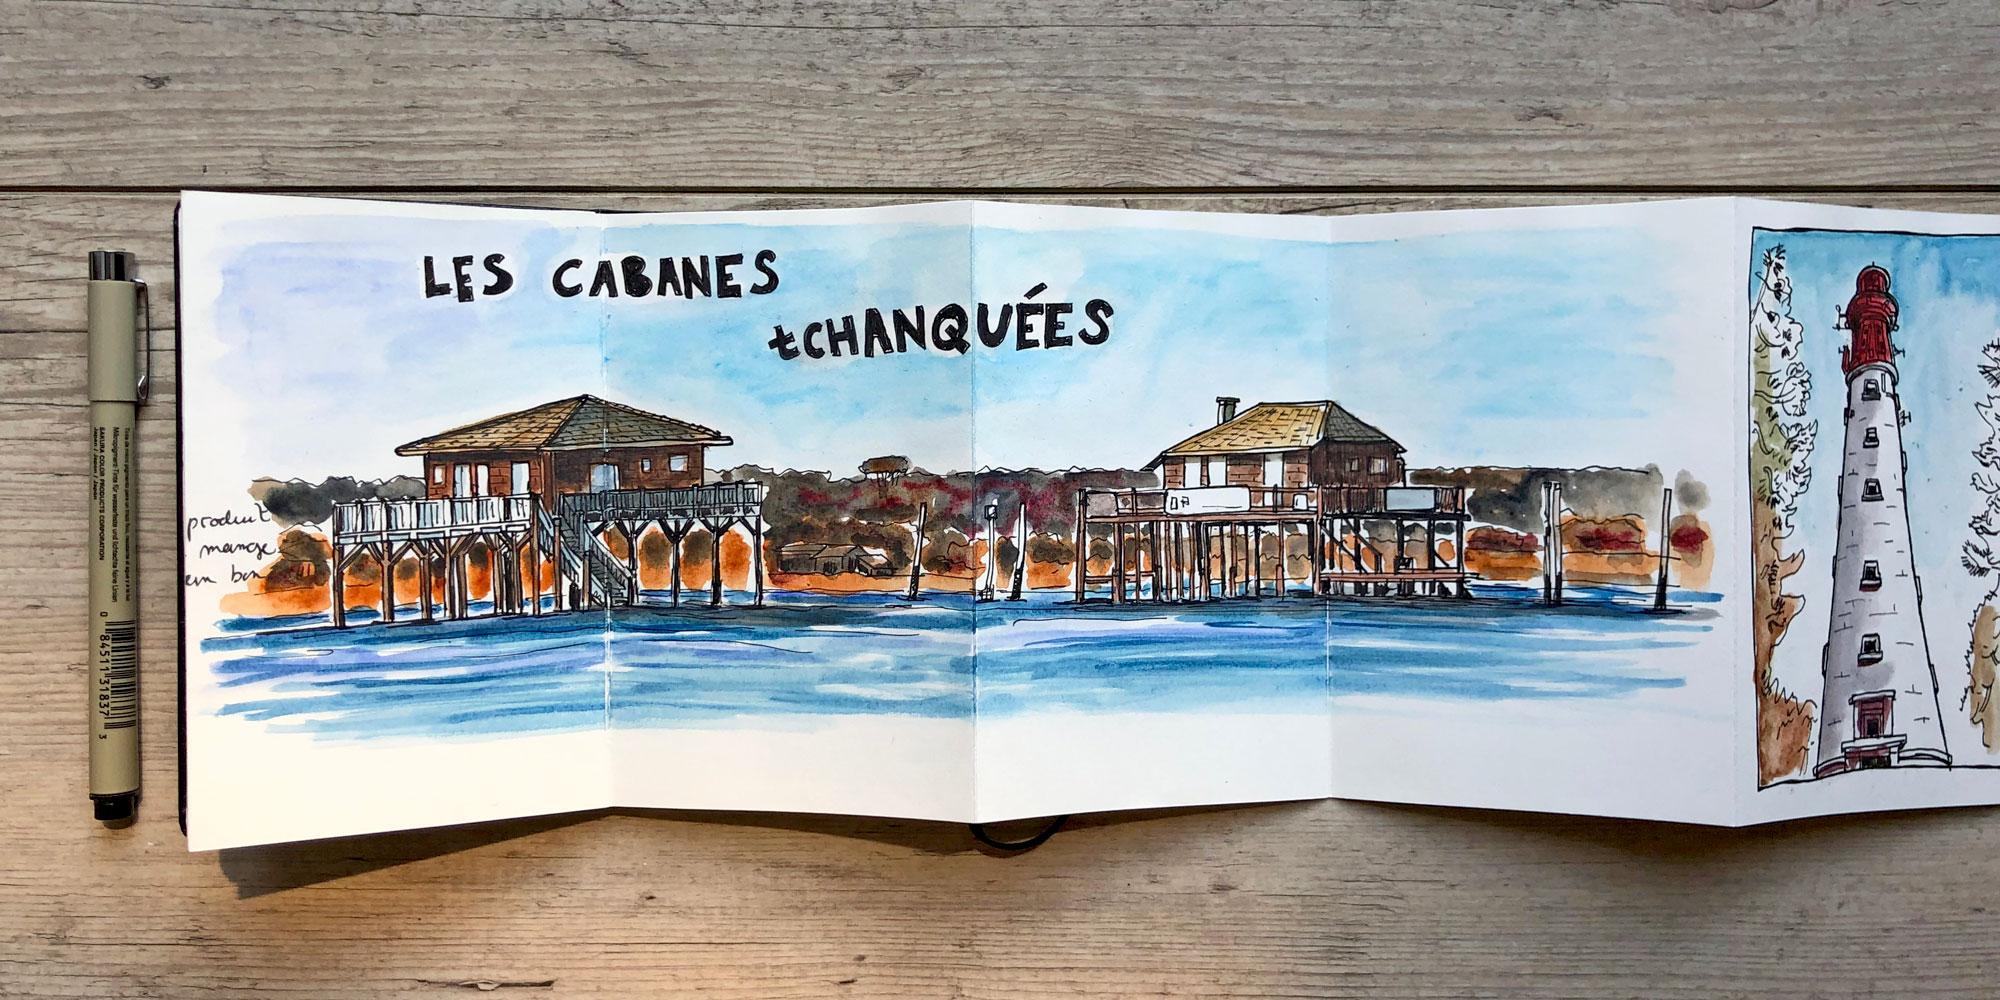 LES CABANES
tCHANQUÉES
produit
mange
en bon
SAKURA COLOR PRODUCTS CORPORATION
Japon / Japan
0 84511 31837 3